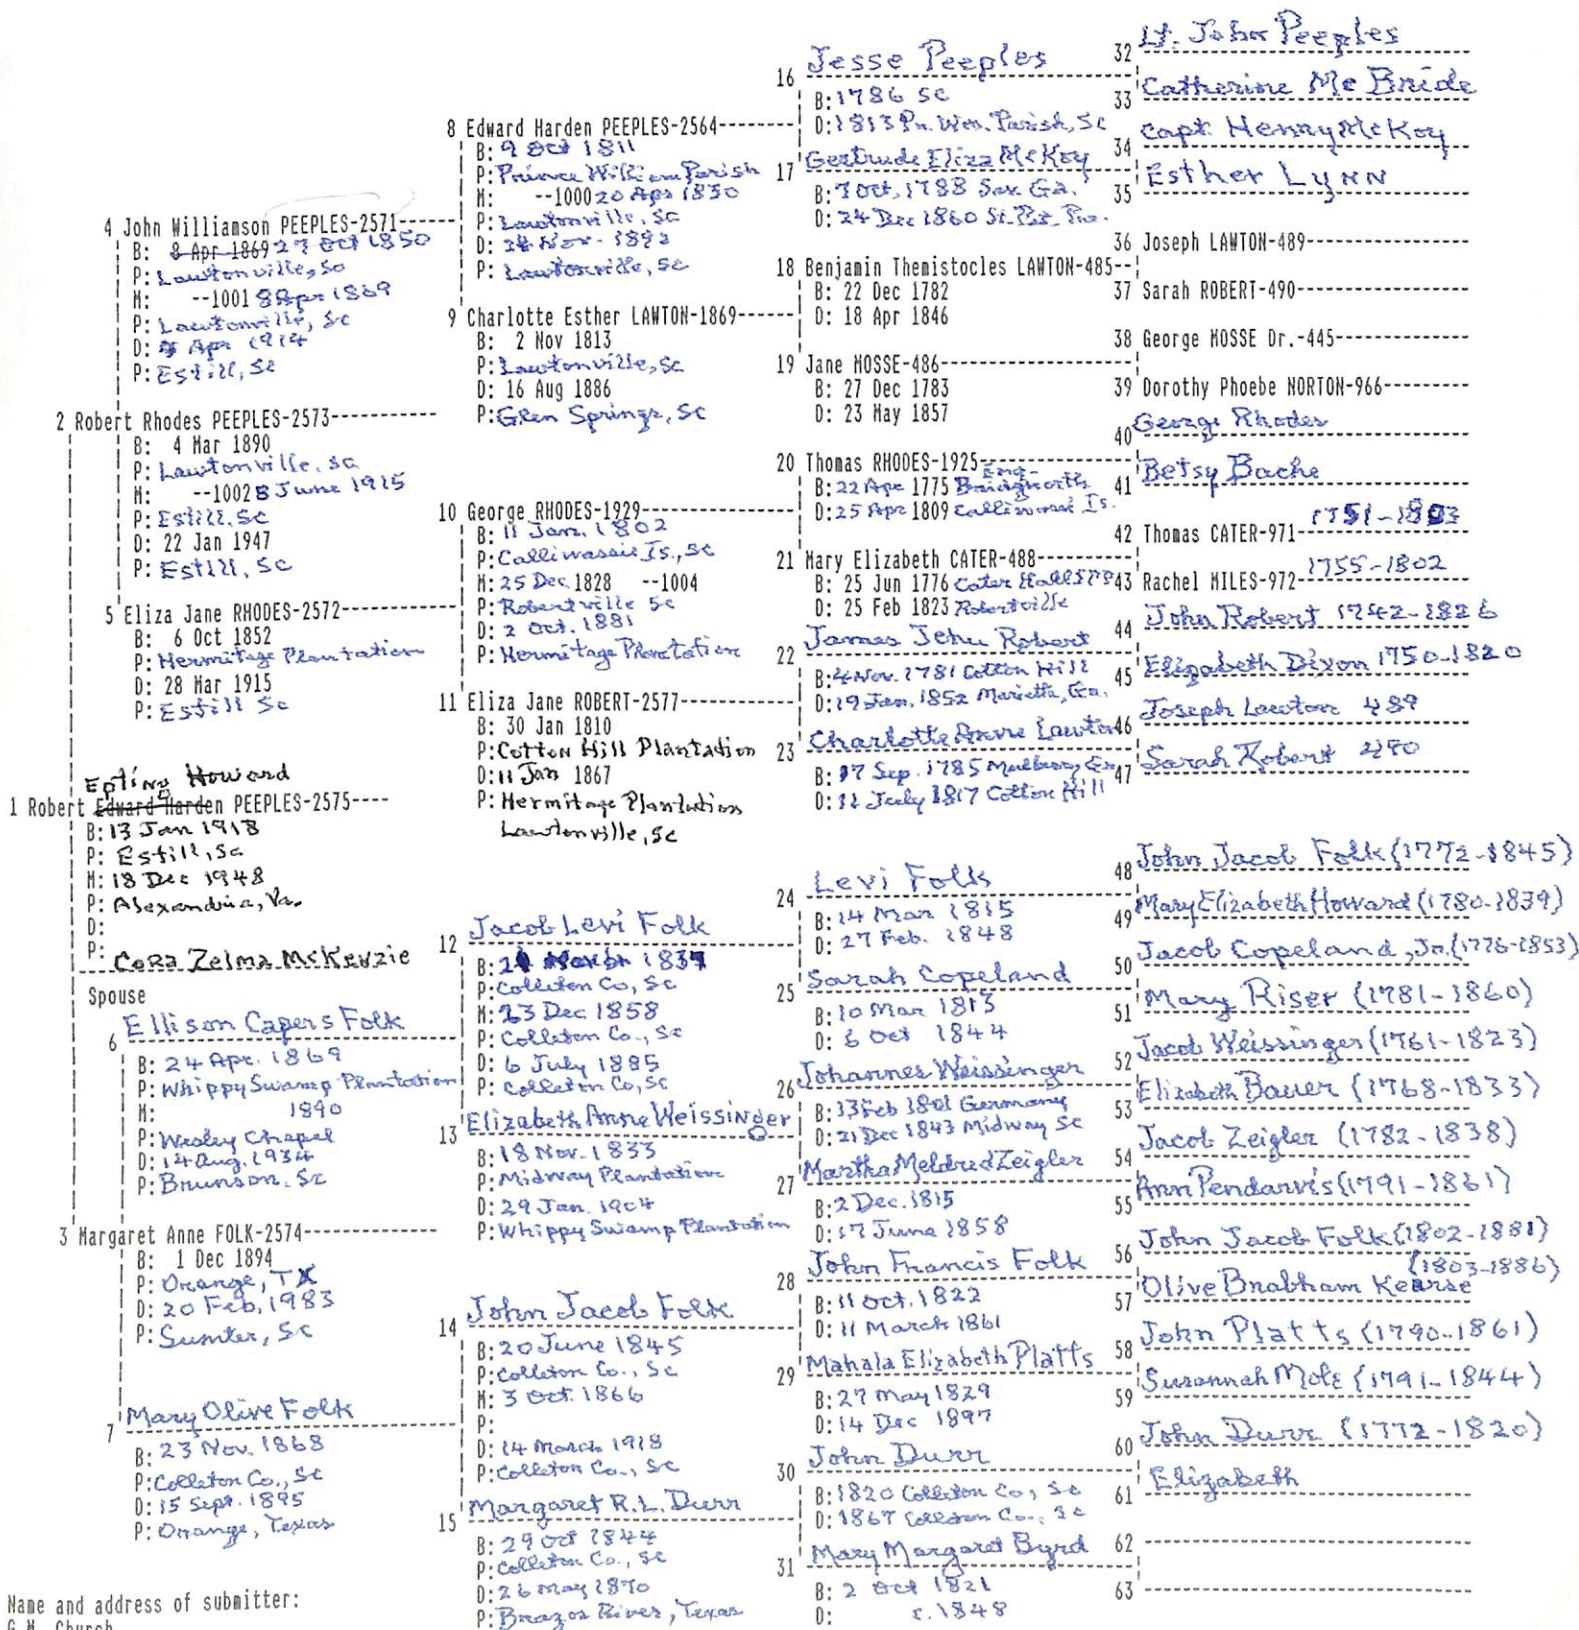 1 Robert Edward Harden PEEPLES-2575----
Epting Howard
B: 13 Jan 1918
P: Estill, Sc
M: 18 Dec 1948
P: Alexandria, Va.
D:
P:
Cora Zelma McKenzie
Spouse
2 Robert Rhodes PEEPLES-2573-----------
B: 4 Mar 1890
P: Lawtonville, sc
M: --1002 8 June 1915
P: Estill, Sc
D: 22 Jan 1947
P: Estill, Sc
3 Margaret Anne FOLK-2574-------------
B: 1 Dec 1894
P: Orange, TX
D: 20 Feb, 1983
P: Sumter, Sc
4 John Williamson PEEPLES-2571-----
B: 8 Apr 1869 27 Oct 1850
P: Lawtonville, Sc
M: --1001 8 Apr 1869
P: Lawtonville, Sc
D: Apr 1914
P: Estill, Sc
5 Eliza Jane RHODES-2572------------
B: 6 Oct 1852
P: Hermitage Plantation
D: 28 Mar 1915
P: Estill Sc
6 Ellison Capers Folk
B: 24 Apr. 1869
P: Whippy Swamp Plantation
M: 1890
P: Wesley Chapel
D: 14 Aug. 1934
P: Brunson, Sc
7 Mary Olive Folk
B: 23 Nov. 1868
P: Colleton Co., Sc
D: 15 Sept. 1895
P: Orange, Texas
8 Edward Harden PEEPLES-2564-------
B: 9 Oct 1811
P: Prince William Parish
M: --1000 20 Apr 1830
P: Lawtonville, Sc
D: Nov. 1892
P: Lawtonville, Sc
9 Charlotte Esther LAWTON-1869------
B: 2 Nov 1813
P: Lawtonville, Sc
D: 16 Aug 1886
P: Glen Springs, Sc
10 George RHODES-1929---------------
B: 11 Jan. 1802
P: Calliwassie Is., Sc
M: 25 Dec. 1828 --1004
P: Robertville Sc
D: 2 Oct. 1881
P: Hermitage Plantation
11 Eliza Jane ROBERT-2577------------
B: 30 Jan 1810
P: Cotton Hill Plantation
D: 11 Jan 1867
P: Hermitage Plantation
Lawtonville, Sc
12 Jacob Levi Folk
B: 1837
P: Colleton Co, Sc
M: 23 Dec 1858
P: Colleton Co., Sc
D: 6 July 1885
P: Colleton Co, Sc
13 Elizabeth Anne Weissinger
B: 18 Nov. 1833
P: Midway Plantation
D: 29 Jan. 1904
P: Whippy Swamp Plantation
14 John Jacob Folk
B: 20 June 1845
P: Colleton Co., Sc
M: 3 Oct. 1866
P:
D: 14 March 1918
P: Colleton Co., Sc
15 Margaret R.L. Durr
B: 29 Oct 1844
P: Colleton Co., Sc
D: 26 May 1870
P: Brazos River, Texas
16 Jesse Peeples
B: 1786 SC
D: 1813 Pr. Wm. Parish, Sc
17 Gertrude Eliza McKoy
B: 7 Oct, 1788 Sav. Ga.
D: 24 Dec 1860 St. Pet. Pa.
18 Benjamin Themistocles LAWTON-485--
B: 22 Dec 1782
D: 18 Apr 1846
19 Jane MOSSE-486------------
B: 27 Dec 1783
D: 23 May 1857
20 Thomas RHODES-1925
B: 22 Apr 1775 Bridgnorth Eng-
D: 25 Apr 1809 Calliwassie Is.
21 Mary Elizabeth CATER-488-------
B: 25 Jun 1776 Cater Hall
D: 25 Feb 1823 Robertville
22 James Jehu Robert
B: 4 Nov. 1781 Cotton Hill
D: 19 Jan. 1852 Marietta, Ga.
23 Charlotte Anne Lawton
B: 17 Sep. 1785 Mulberry, Gr.
D: 11 July 1817 Cotton Hill
24 Levi Folk
B: 14 Mar 1815
D: 27 Feb. 1848
25 Sarah Copeland
B: 10 Mar 1813
D: 6 Oct 1844
26 Johannes Weissinger
B: 13 Feb 1801 Germany
D: 21 Dec 1843 Midway Sc
27 Martha Meldred Zeigler
B: 2 Dec. 1815
D: 17 June 1858
28 John Francis Folk
B: 11 Oct. 1822
D: 11 March 1861
29 Mahala Elizabeth Platts
B: 27 May 1829
D: 14 Dec 1897
30 John Durr
B: 1820 Colleton Co, Sc
D: 1867 Colleton Co., Sc
31 Mary Margaret Byrd
B: 2 Oct 1821
D: c. 1848
32 Lt. John Peeples
33 Catherine Mc Bride
34 Capt. Henry McKoy
35 Esther Lynn
36 Joseph LAWTON-489-------------
37 Sarah ROBERT-490-------------
38 George MOSSE Dr.-445-----------
39 Dorothy Phoebe NORTON-966---------
40 George Rhodes
41 Betsy Bache
42 Thomas CATER-971------ 1751-1803
43 Rachel MILES-972------ 1755-1802
44 John Robert 1742-1826
45 Elizabeth Dixon 1750-1820
46 Joseph Lawton 489
47 Sarah Robert 490
48 John Jacob Folk (1772-1845)
49 Mary Elizabeth Howard (1780-1839)
50 Jacob Copeland, Jr. (1776-1853)
51 Mary Riser (1781-1860)
52 Jacob Weissinger (1761-1823)
53 Elizabeth Bauer (1768-1833)
54 Jacob Zeigler (1782-1838)
55 Ann Pendarvis (1791-1861)
56 John Jacob Folk (1802-1881)
57 Olive Brabham Kearse (1803-1886)
58 John Platts (1790-1861)
59 Susannah Mole (1791-1844)
60 John Durr (1772-1820)
61 Elizabeth
62
63
Name and address of submitter:
G.M. Church